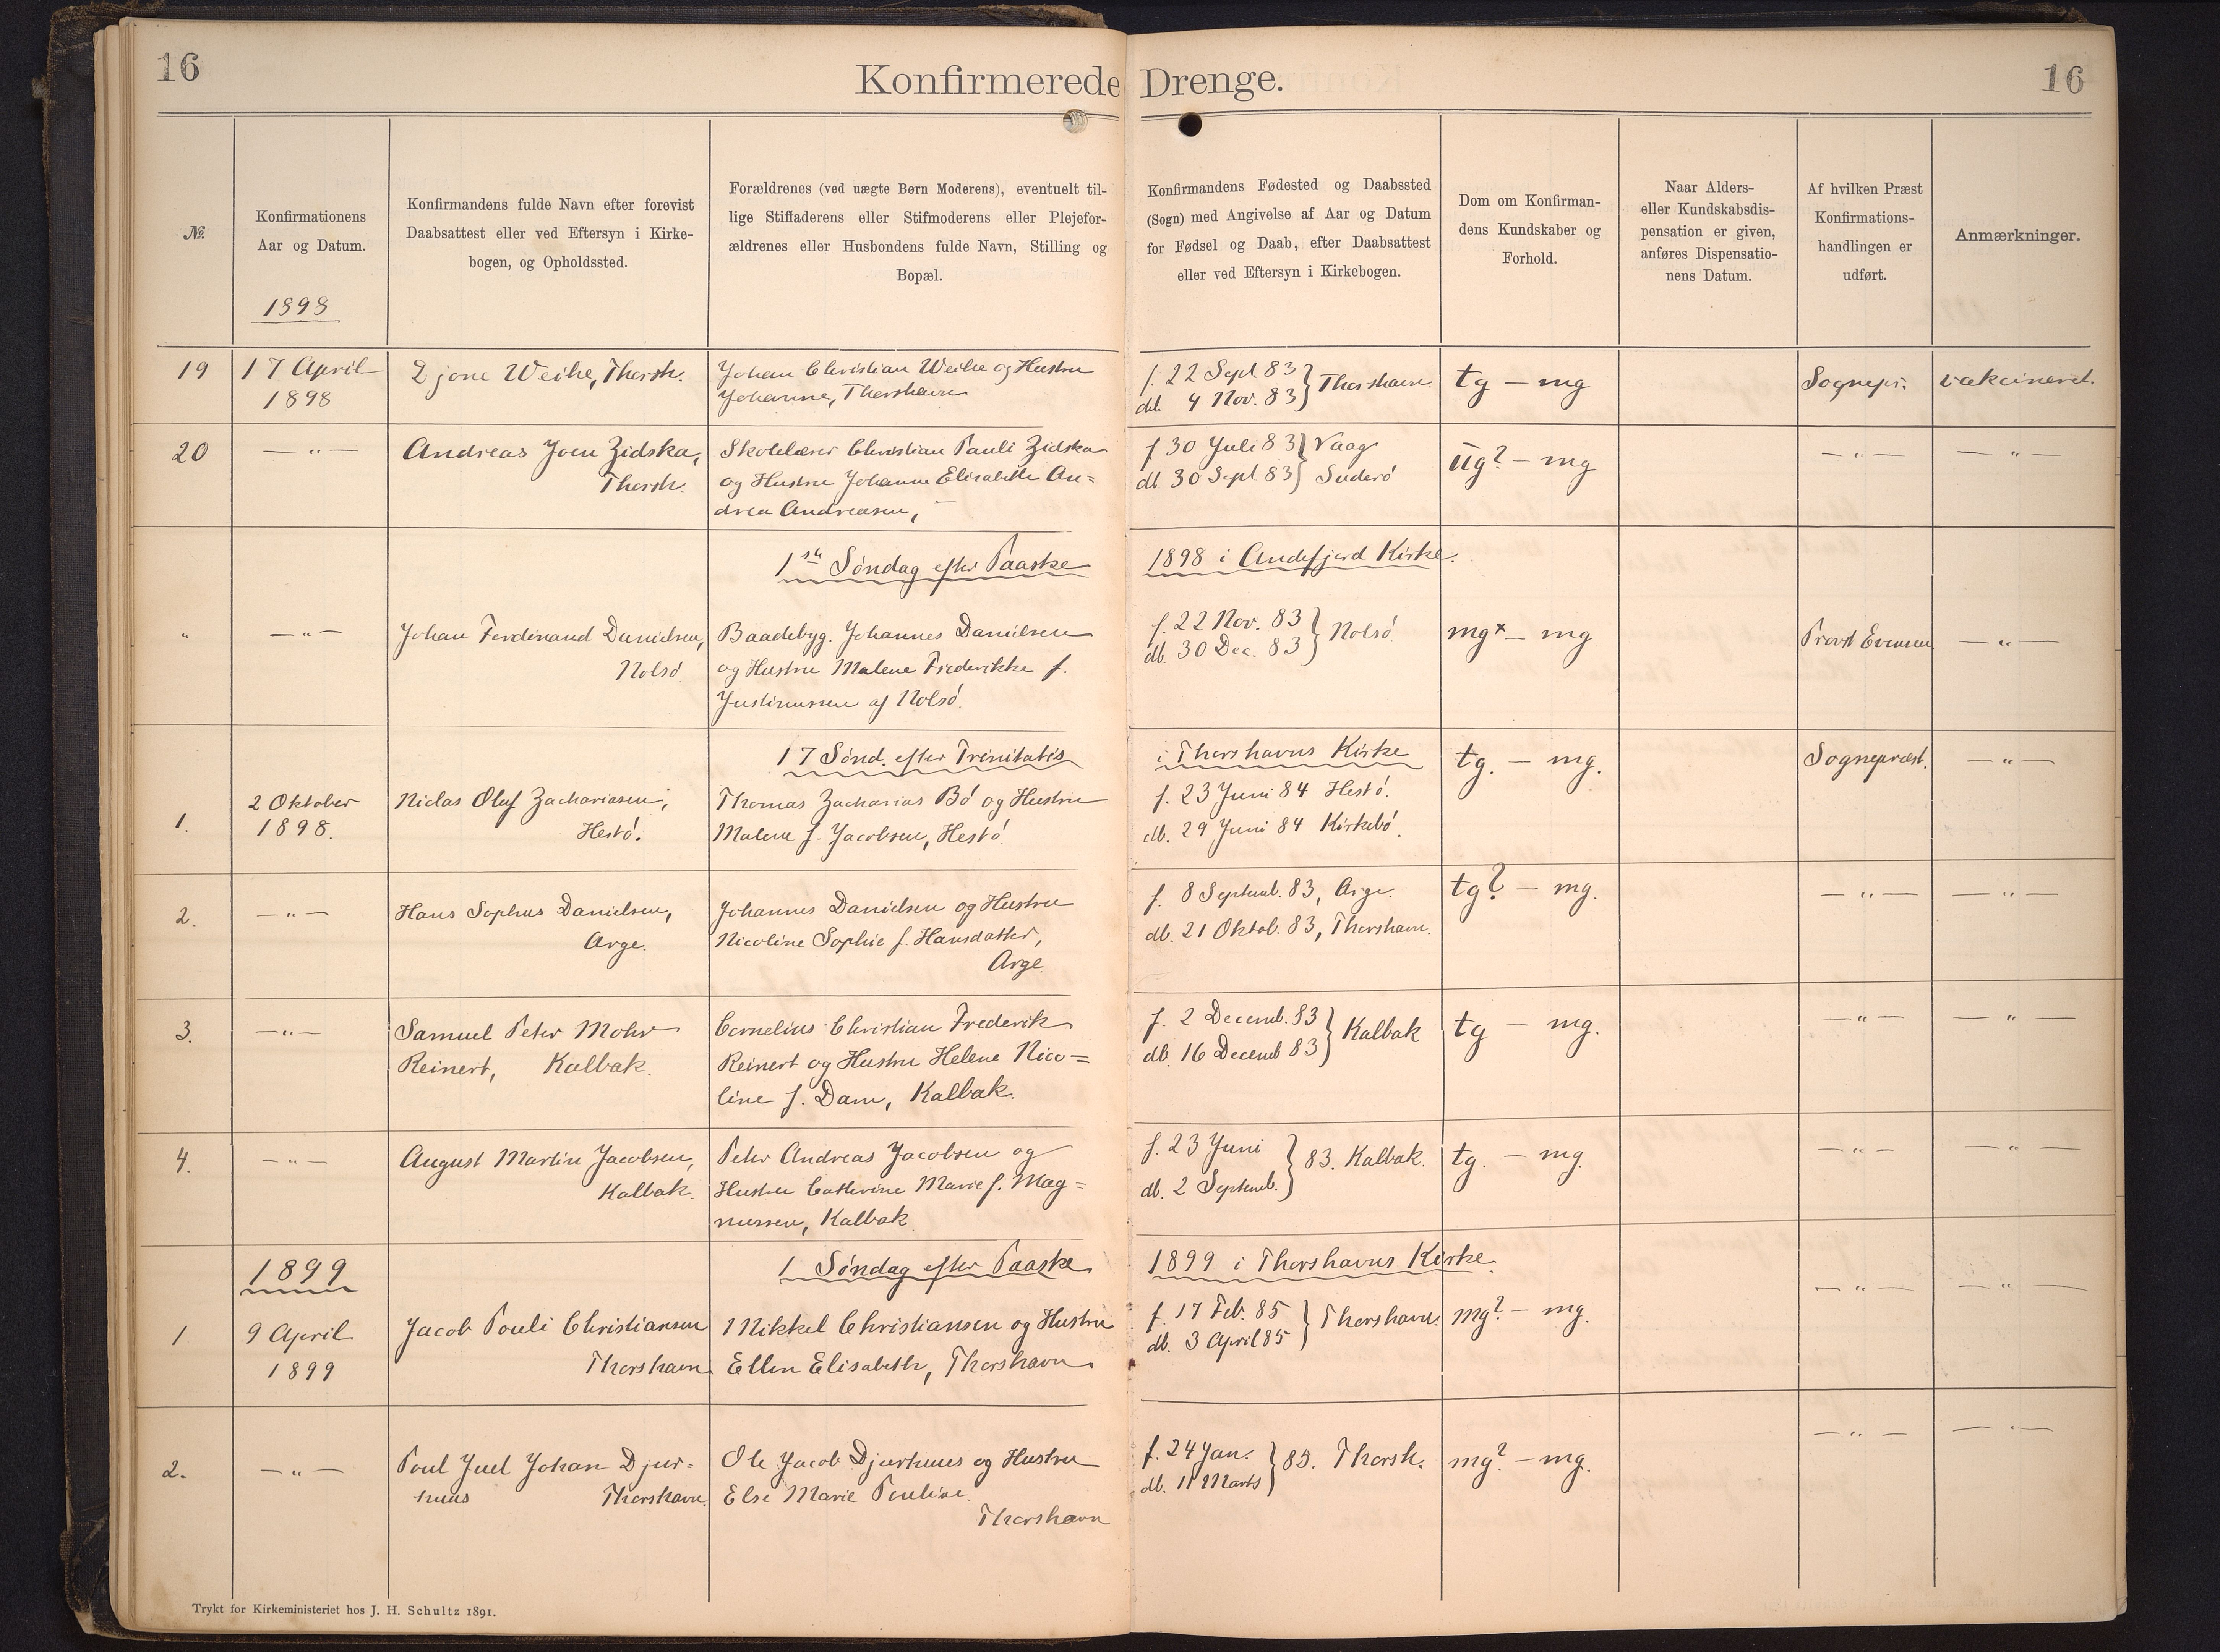 16
Konfirmerede Drenge.
16
№.
Konfirmationens
Aar og Datum.
1898
Konfirmandens fulde Navn efter forevist
Daabsattest eller ved Eftersyn i Kirke-
bogen, og Opholdssted.
Forældrenes (ved uægte Børn Moderens), eventuelt til-
lige Stiffaderens eller Stifmoderens eller Plejefor-
ældrenes eller Husbondens fulde Navn, Stilling og
Bopæl.
Konfirmandens Fødested og Daabssted
(Sogn) med Angivelse af Aar og Datum
for Fødsel og Daab, efter Daabsattest
eller ved Eftersyn i Kirkebogen.
Dom om Konfirman-
dens Kundskaber og
Forhold.
Naar Alders-
eller Kundskabsdis-
pensation er given,
anføres Dispensatio-
nens Datum.
Af hvilken Præst
Konfirmations-
handlingen er
udført.
Anmærkninger.
19
17 April
1898
Djone Weihe, Thorsh.
Johan Christian Weihe og Hustru
Johanne, Thorshavn
f. 22 Sept. 83
db. 4 Nov. 83 } Thorshavn
tg — mg
Sognepr.
vakcineret.
20
— " —
Andreas Joen Zidska,
Thorsh.
Skolelærer Christian Pauli Zidska
og Hustru Johanne Elisabeth An=
drea Andreasen,
f 30 Juli 83 } Vaag
db. 30 Sept 83 } Suderö
ug? — mg
— " —
— " —
1ste Søndag efter Paaske
1898 i Andefjord Kirke.
"
— " —
Johan Ferdinand Danielsen,
Nolsö
Baadebyg. Johannes Danielsen
og Hustru Malene Frederikke f.
Justinussen af Nolsö.
f. 22 Nov. 83
db. 30 Dec. 83 } Nolsö.
mg× — mg
Provst Evensen
— " —
17 Sönd. efter Trinitatis
i Thorshavns Kirke
1.
2 Oktober
1898.
Niclas Oluf Zachariasen,
Hestö.
Thomas Zacharias Bö og Hustru
Malene f. Jacobsen, Hestö
f. 23 Juni 84 Hestö.
db. 29 Juni 84 Kirkebö.
tg. — mg.
Sognepræst.
— " —
2.
— " —
Hans Sophus Danielsen,
Arge.
Johannes Danielsen og Hustru
Nicoline Sophie f. Hansdatter,
Arge
f. 8 Septemb. 83, Arge.
db. 21 Oktob. 83, Thorshavn.
tg? — mg.
— " —
— " —
3.
— " —
Samuel Peter Mohr
Reinert, Kalbak.
Cornelius Christian Frederik
Reinert og Hustru Helene Nico=
line f. Dam, Kalbak.
f. 2 Decemb. 83
db. 16 Decemb 83 } Kalbak
tg — mg.
— " —
— " —
4.
— " —
August Martin Jacobsen,
Kalbak.
Peter Andreas Jacobsen og
Hustru Cathrine Marie f. Mag=
nussen, Kalbak
f. 23 Juni
db. 2 Septemb. } 83. Kalbak.
tg. — mg.
— " —
— " —
1899
1 Søndag efter Paaske
1899 i Thorshavns Kirke.
1
9 April
1899
Jacob Pouli Christiansen
Thorshavn
Mikkel Christiansen og Hustru
Ellen Elisabeth, Thorshavn
f. 17 Feb. 85
db. 3 April 85 } Thorshavn.
mg? — mg.
— " —
— " —
2.
— " —
Poul Juel Johan Djur=
huus Thorshavn.
Ole Jacob Djurhuus og Hustru
Else Marie Pouline
Thorshavn
f. 24 Jan.
db. 11 Marts } 85. Thorsh.
mg? — mg.
— " —
— " —
Trykt for Kirkeministeriet hos J. H. Schultz 1891.